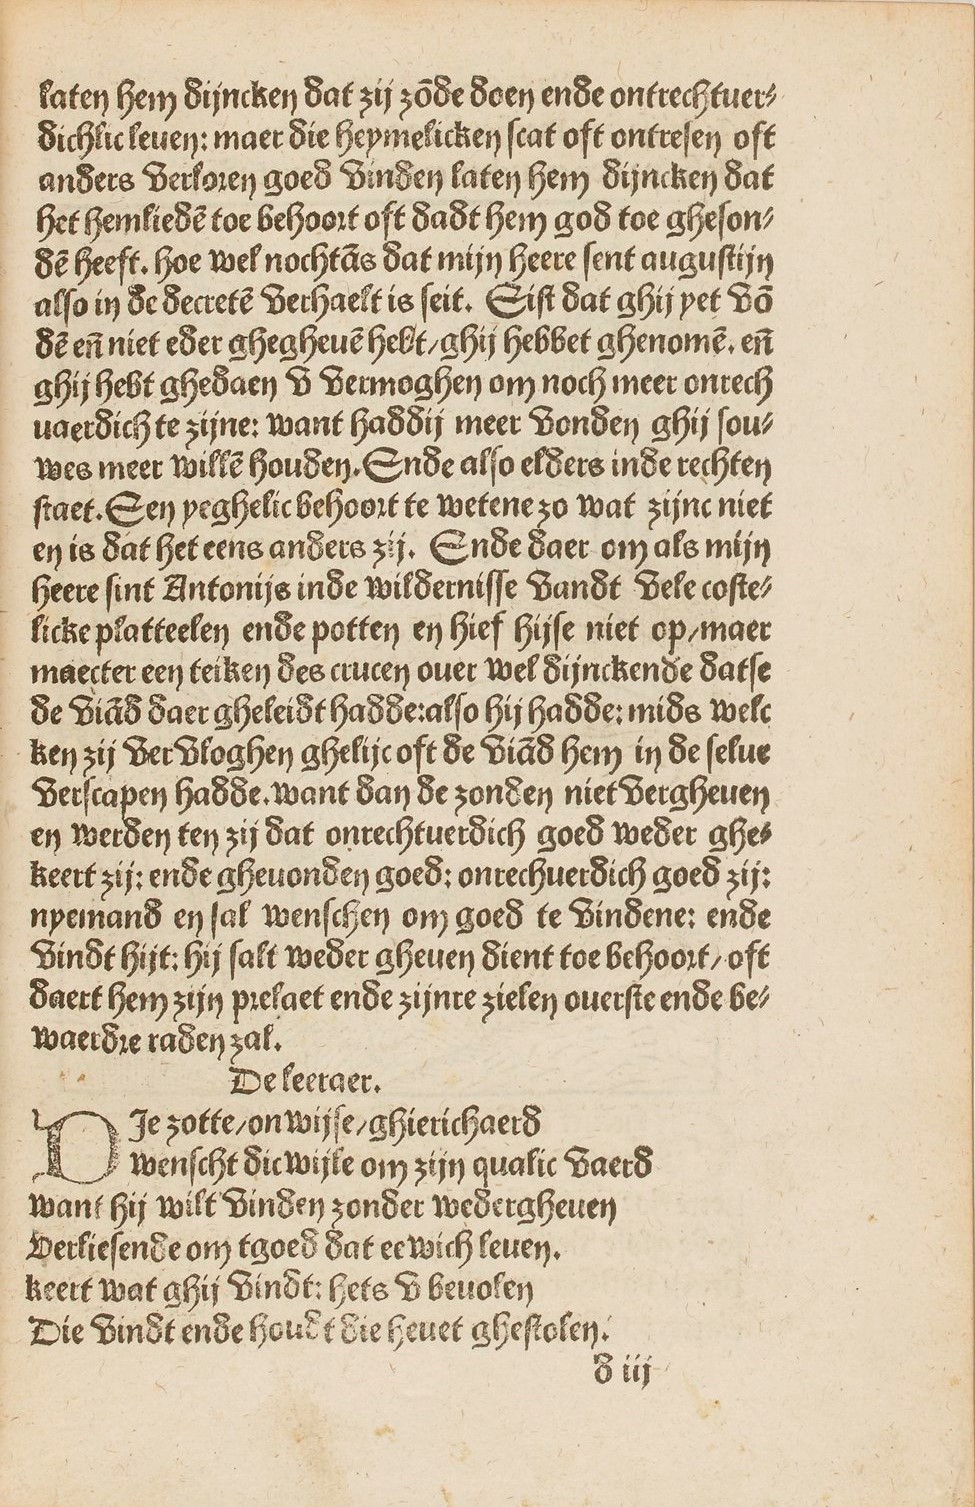 laten hem dijncken dat zij zōde doen ende ontrechtuer⸗
dichlic leuen: maer die heymelicken scat oft ontresen oft
anders verloren goed vinden laten hem dijncken dat
het hemliedē toe behoort oft dadt hem god toe gheson⸗
dē heeft. hoe wel nochtās dat mijn heere sent augustijn
also in de decretē verhaelt is seit. Eist dat ghij yet vō
dē eñ niet eder ghegheuē hebt/ghij hebbet ghenomē. eñ
ghij hebt ghedaen v vermoghen om noch meer onrech
uaerdich te zijne: want haddij meer vonden ghij sou⸗
wes meer willē houden. Ende also elders inde rechten
staet. Een yeghelic behoort te wetene zo wat zijnc niet
en is dat het eens anders zij. Ende daer om als mijn
heere sint Antonijs inde wildernisse vandt vele coste⸗
licke platteelen ende potten en hief hijse niet op/maer
maecter een teiken des crucen ouer wel dijnckende datse
de viād daer gheleidt hadde:also hij hadde: mids welc
ken zij vervloghen ghelijc oft de viād hem in de selue
verscapen hadde. want dan de zonden niet vergheuen
en werden ten zij dat onrechtuerdich goed weder ghe⸗
keert zij: ende gheuonden goed: onrechuerdich goed zij:
nyemand en sal wenschen om goed te vindene: ende
vindt hijt: hij salt weder gheuen dient toe behoort/oft
daert hem zijn prelaet ende zijnre zielen ouerste ende be⸗
waerdre raden zal.
De leeraer.
DIe zotte/onwijse/ghierichaerd
wenscht dicwijle om zijn qualic vaerd
want hij wilt vinden zonder wedergheuen
Verliesende om tgoed dat eewich leuen.
keert wat ghij vindt: hets v beuolen
Die vindt ende houdt die heuet ghestolen.
d iij